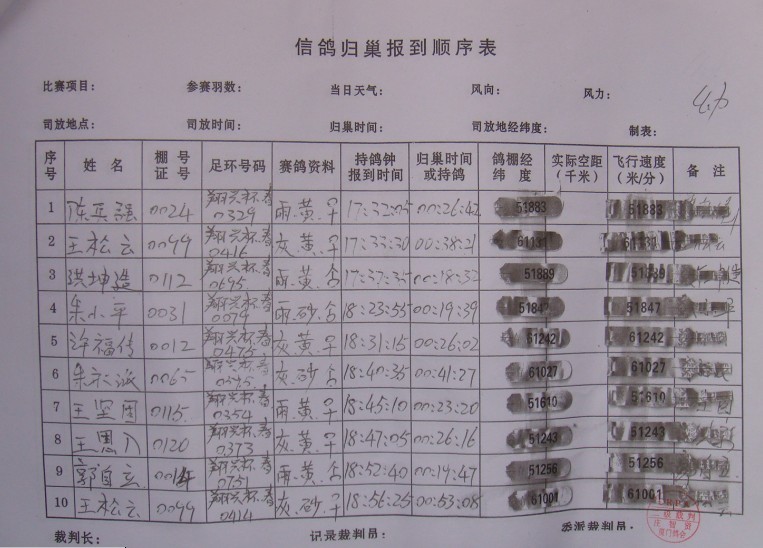 信鸽归巢报到顺序表
比赛项目: 参赛羽数: 当日天气: 风向: 风力:
司放地点: 司放时间: 归巢时间: 司放地经纬度: 制表:
序号 姓名 棚号证号 足环号码 赛鸽资料 持鸽钟报到时间 归巢时间或持鸽 鸽棚经纬度 实际空距(千米) 飞行速度(米/分) 备注
1 陈英强 0024 翔兴杯.春0329 雨.黄.早 17:32:05 00:26:42 51883 51883
2 王松云 0099 翔兴杯.春0416 灰.黄.早 17:33:30 00:38:21 61131
3 洪坤造 0112 翔兴杯.春0695 雨.黄.合 17:37:35 00:18:32 51889
4 朱小平 0031 翔兴杯.春0079 雨.砂.合 18:23:55 00:19:39 51847 51847
5 许福传 0012 翔兴杯.春0475 灰.黄.早 18:31:15 00:26:02 61242 61242
6 朱永派 0065 翔兴杯.春 灰.砂.合 18:40:35 00:41:27 61027 61027
7 王坚固 0115 翔兴杯.春0354 雨.黄.早 18:45:10 00:23:20 51610 51610
8 王思 0120 翔兴杯.春0373 灰.黄.早 18:47:05 00:26:16 51243 51243
9 郭自立 0014 翔兴杯.春0751 雨.黄.合 18:52:40 00:19:47 51256 51256
10 王松云 0099 翔兴杯.春0414 灰.砂.早 18:56:25 00:53:08 61001 61001
裁判长: 记录裁判员: 委派裁判员: